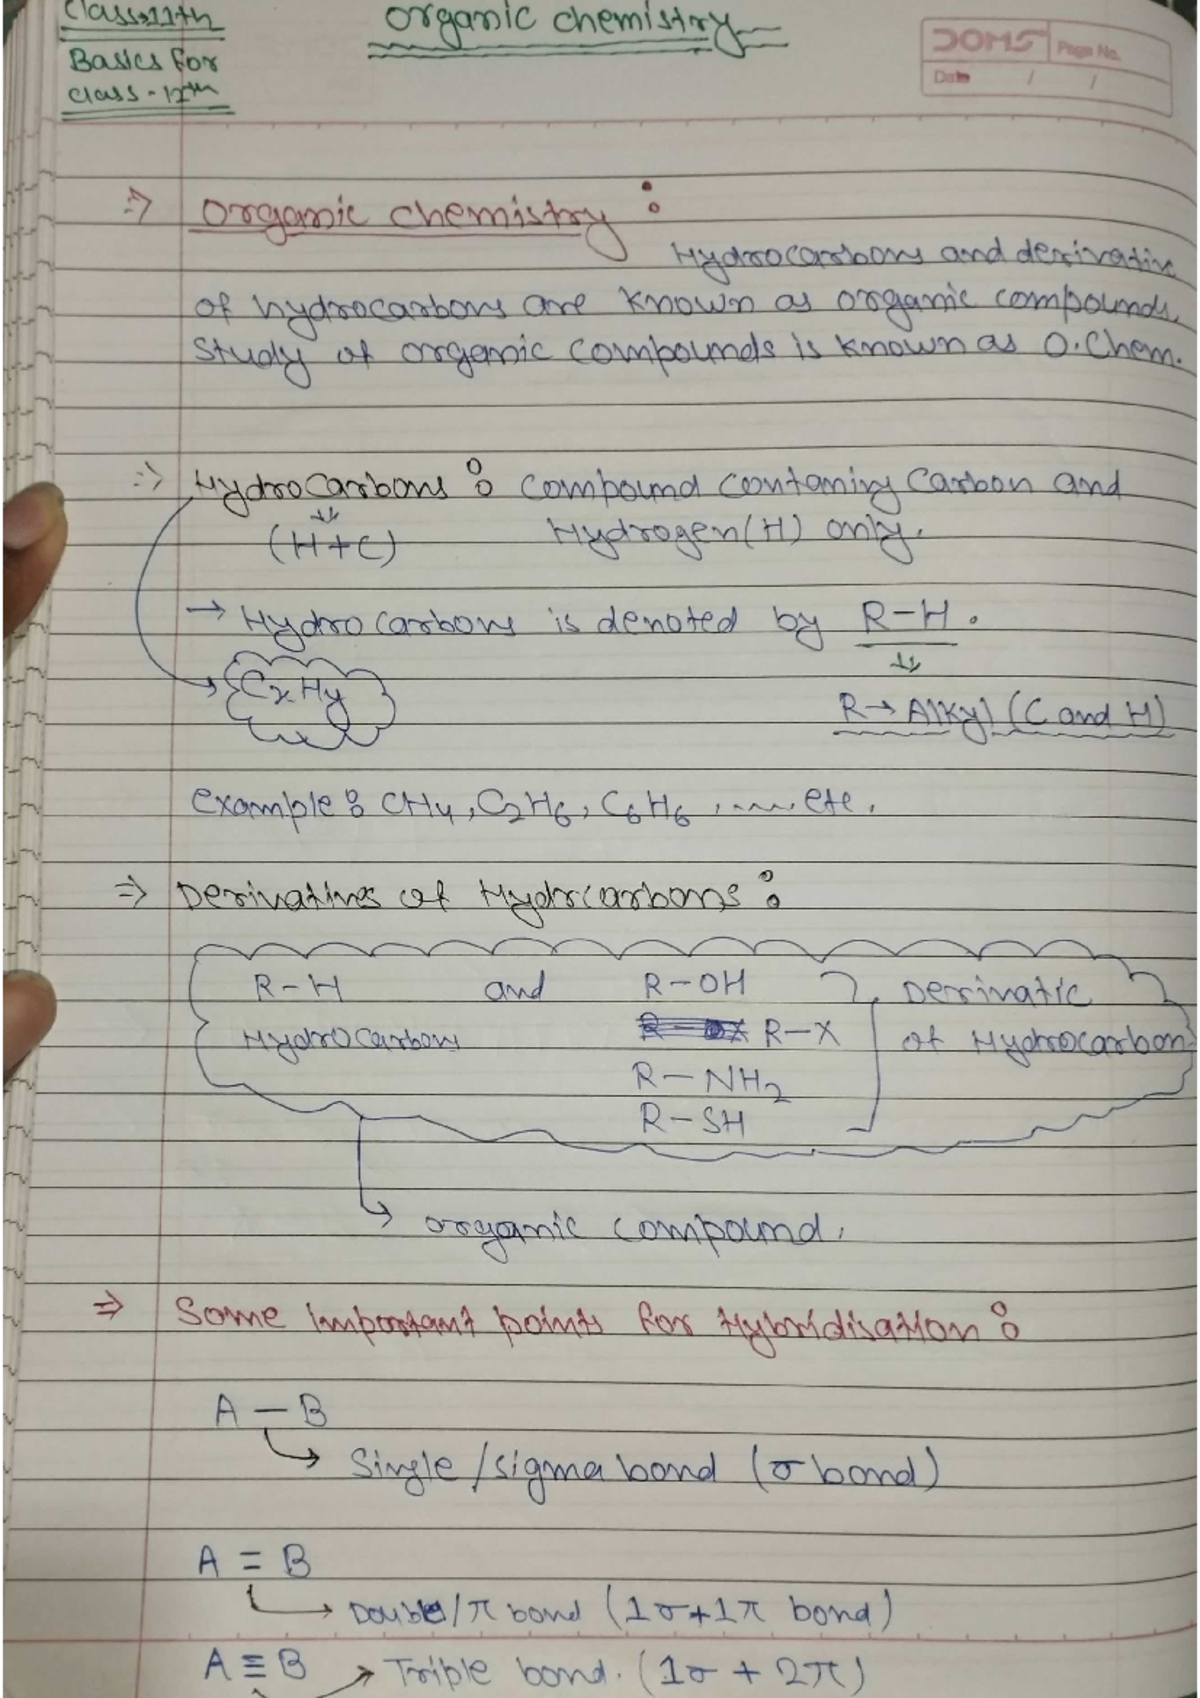 Class-11th
Organic chemistry
Basics for
class-12th
DOMS Page No.
Date / /
⇒ Organic chemistry :
Hydrocarbons and derivative
of hydrocarbons are known as organic compounds.
Study of organic compounds is known as O.Chem.
⇒ Hydrocarbons : Compound containing Carbon and
(H+C) Hydrogen(H) only.
→ Hydrocarbons is denoted by R-H.
CxHy
R→Alkyl (C and H)
example : CH4, C2H6, C6H6, ..... etc.
⇒ Derivatives of Hydrcarbons :
R-H and R-OH Derivatic
Hydrocarbons R-X of Hydrocarbon
R-NH2
R-SH
organic compound.
⇒ Some Important points for Hybridisation :
A-B
→ Single/sigma bond (σ bond)
A=B
→ Double/π bond (1σ+1π bond)
A≡B → Triple bond. (1σ + 2π)